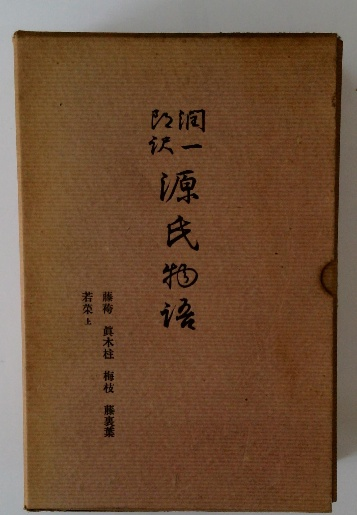 潤一
郎訳
源氏物語
藤袴 眞木柱 梅枝 藤裏葉
若菜 上